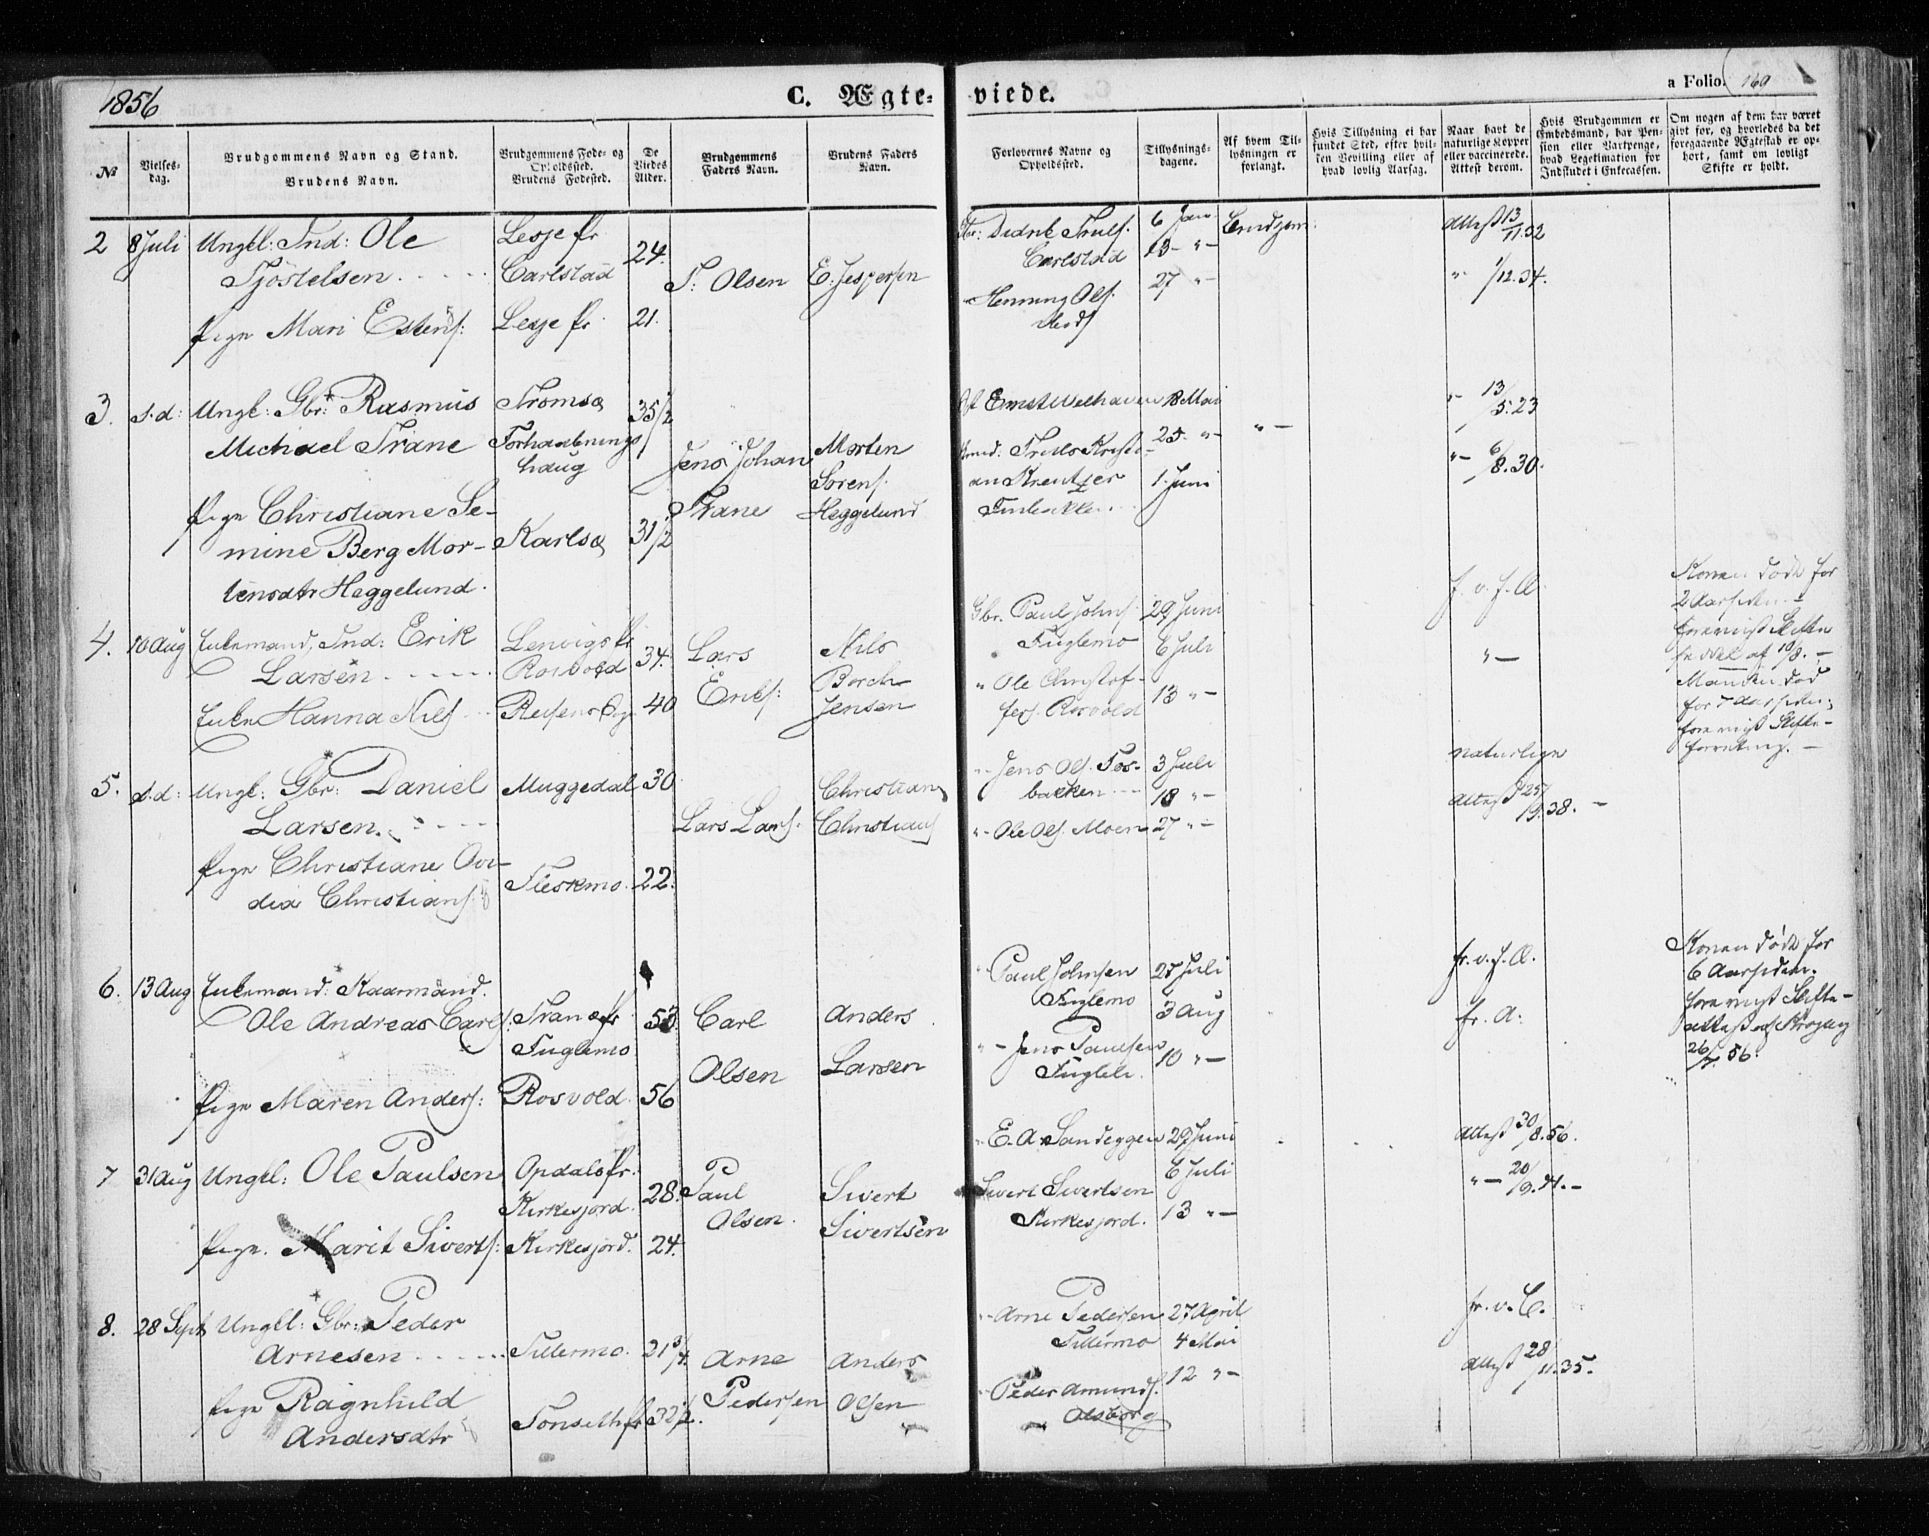 1856
C. Ægte-
viede.
a Folio. 160
No
Vielses-
dag.
Brudgommens Navn og Stand.
Brudens Navn.
Brudgommens Føde- og
Opholdssted.
Brudens Fødested.
De
Viedes
Alder.
Brudgommens
Faders Navn.
Brudens Faders
Navn.
Forlovernes Navne og
Opholdssted.
Tillysnings-
dagene.
Af hvem Til-
lysningen er
forlangt.
Hvis Tillysning ei har
fundet Sted, efter hvil-
ken Bevilling eller af
hvad lovlig Aarsag.
Naar havt de
naturlige Kopper
eller vaccinerede.
Attest derom.
Hvis Brudgommen er
Embedsmand, har Pen-
sion eller Vartpenge,
hvad Legetimation for
Indskudet i Enkecassen.
Om nogen af dem har været
givt før, og hvorledes da det
foregaaende Ægteskab er op-
hørt, samt om lovligt
Skifte er holdt.
2 8 Juli Ungkl: Ind: Ole
Tjöstelsen
Lesje pr
Carlstad
24.
T. Olsen
E. Jespersen
Trulf.
Carlstad
Henning Olf.
6 Jan
13 - "-
27 "-
Attest 13/11.32
"- 1/12.34.
Pige Mari Estens:
Lesje pr. 21.
3. s.d: Ungk: Gbr: Rasmus
Michael Trane
Tromsø
Forhaabnings
haug
35 1/2
Jens Johan
Trane
Morten
Sørens.
Heggelund
Ernst Welhaven
Kreutzer
18 Mai
25. "-
1. Juni
"-
"- 13/5.23
"- 6/8.30.
Pige Christiane Se-
mine Berg Mor-
tensdtr Heggelund.
Karlsø
31 1/2
4. 10 Aug Enkemand, Ind: Erik
Larsen
Enke Hanna Nils
Lenvigs pr
Rosvold
34.
40
Lars
Eriks:
Nils
Borch
Jensen
Gbr. Paul Johns.
Fuglemo
" Ole Christof-
fers. Rosvold
29 Juni
6 Juli
13 "-
f. v. f. A.
"-
Konen døde for
2 Aar siden
Manden død
for 7 Aar siden;
5. s.d: Ungk: Gbr: Daniel
Larsen.
Muggedal 30
Lars Lars:
Christian
Christians
"- Jens Ols. Fos-
bakken
"- Ole Ols. Moen
3 Juli
18 "-
27 "-
naturlige
Attest 25/9.38. -
Pige Christiane Ovi-
dia Christians
Fleskmo. 22.
6. 13 Aug Enkemand: Kaarmand.
Ole Andreas Carls:
Tranø pr
Fuglemo
53.
Carl
Olsen
Anders
Larsen
"- Paul Johnsen
Fuglemo
"- Jens Paulsen
Fugleli.
27 Juli
3 Aug
10 "-
fr. v. f. A.
fr. A:
Konen døde for
6 Aar siden.
26/7. 56.
Pige Maren Anders: Rosvold. 56
7 31 Aug Ungkl: Ole Paulsen
Opdals pr.
Kirkesjord.
28.
Paul
Olsen.
Sivert
Sivertsen
"- E. A. Sandeggen
Sivert Sivertsen
Kirkesjord.
29 Juni
6 Juli
13 "-
Attest 30/8.56.
"- 20/9.
Pige. Marit Siverts: Kirkesjord. 24.
8. 28 Sept Ungkl: Gbr: Peder
Arnesen
Tillermo. 21 3/4
Arne
Pedersen
Anders
Olsen
"- Arne Pedersen
Tillermo
"- Peder Amunds.
Olsborg
27 April
4 Mai
12 "-
fr. v. C.
Attest 28/11.35.
Pige Ragnhild
Andersdtr
Tonseth pr 32 1/2.